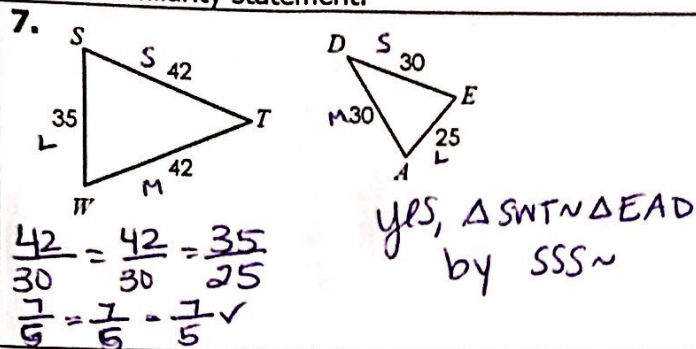 7.
S
S
42
35
L
T
M
42
W
D
S
30
E
M30
25
L
A
42/30 = 42/30 = 35/25
7/5 = 7/5 = 7/5 ✓
yes, △SWT~△EAD
by SSS~